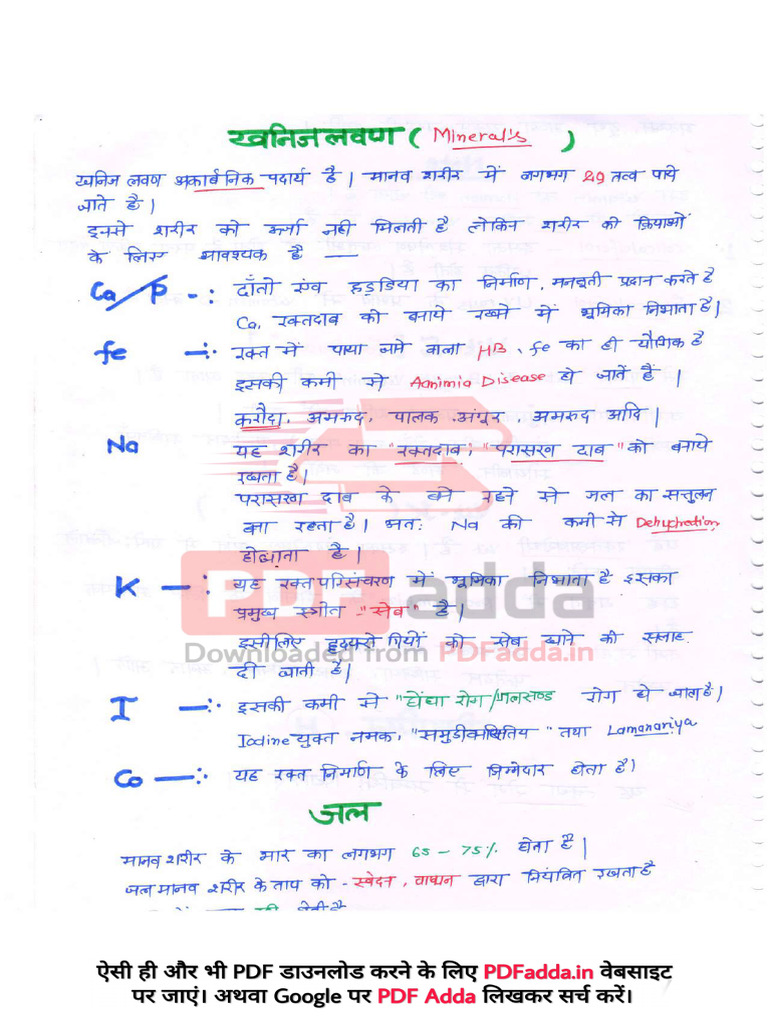 खनिज लवण ( Mineral's )
खनिज लवण अकार्बनिक पदार्थ है | मानव शरीर में लगभग 29 तत्व पाये
जाते है |
इनसे शरीर को ऊर्जा नही मिलती है लेकिन शरीर की क्रियाओं
के लिए आवश्यक है —
Ca/P -: दाँतो एंव हडडिया का निर्माण, मजबूती प्रदान करते है
Ca, रक्तदाब को बनाये रखने में भूमिका निभाता है |
fe —: रक्त में पाया जाने वाला HB, fe का ही यौगिक है
इसकी कमी से Aanimia Disease हो जाते हैं |
करौदा, अमरुद, पालक अंगूर, अमरुद आदि |
Na यह शरीर का "रक्तदाब", "परासरण दाब" को बनाये
रखता है |
परासरण दाब के बने रहने से जल का सन्तुलन
बना रहता है | अतः Na की कमी से Dehydration
हो जाता है |
K —: यह रक्त परिसंचरण में भूमिका निभाता है इसका
प्रमुख स्त्रोत - "सेब" है |
PDF adda
इसीलिए हृदयरोगियों को सेब खाने की सलाह
Downloaded from PDFadda.in
दी जाती है |
I —: इसकी कमी से "घेंघा रोग/गलगण्ड रोग हो जाता है |
Iodine युक्त नमक, तथा Lamanariya
Co —: यह रक्त निर्माण के लिए जिम्मेदार होता है |
जल
मानव शरीर के भार का लगभग 65 – 75% होता है |
जल मानव शरीर के ताप को - स्वेदन, वाष्पन द्वारा नियंत्रित रखता है
ऐसी ही और भी PDF डाउनलोड करने के लिए PDFadda.in वेबसाइट
पर जाएं। अथवा Google पर PDF Adda लिखकर सर्च करें।